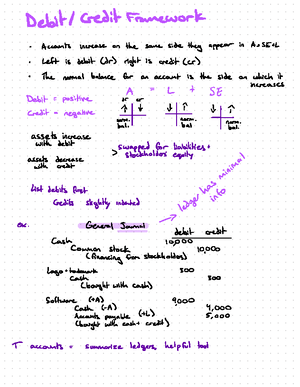 Debit/Credit Framework
• Accounts increase on the same side they appear in A=SE+L
• Left is debit (dr) right is credit (cr)
• The normal balance for an account is the side on which it increases
A = L + SE
Debit = positive
Credit = negative
dr cr
↑ ↓ ↓ ↑ ↓ ↑
norm. bal. norm. bal. norm. bal.
assets increase with debit
> swapped for liabilities + stockholders equity
assets decrease with credit
List debits first
Credits slightly indented
→ ledger has minimal info
ex.
General Journal
debit credit
Cash 10,000
Common stock 10,000
(financing from stockholders)
Logo + trademark 300
Cash 300
(bought with cash)
Software (+A) 9,000
Cash (-A) 4,000
Accounts payable (+L) 5,000
(bought with cash + credit)
T accounts = summarize ledgers, helpful tool